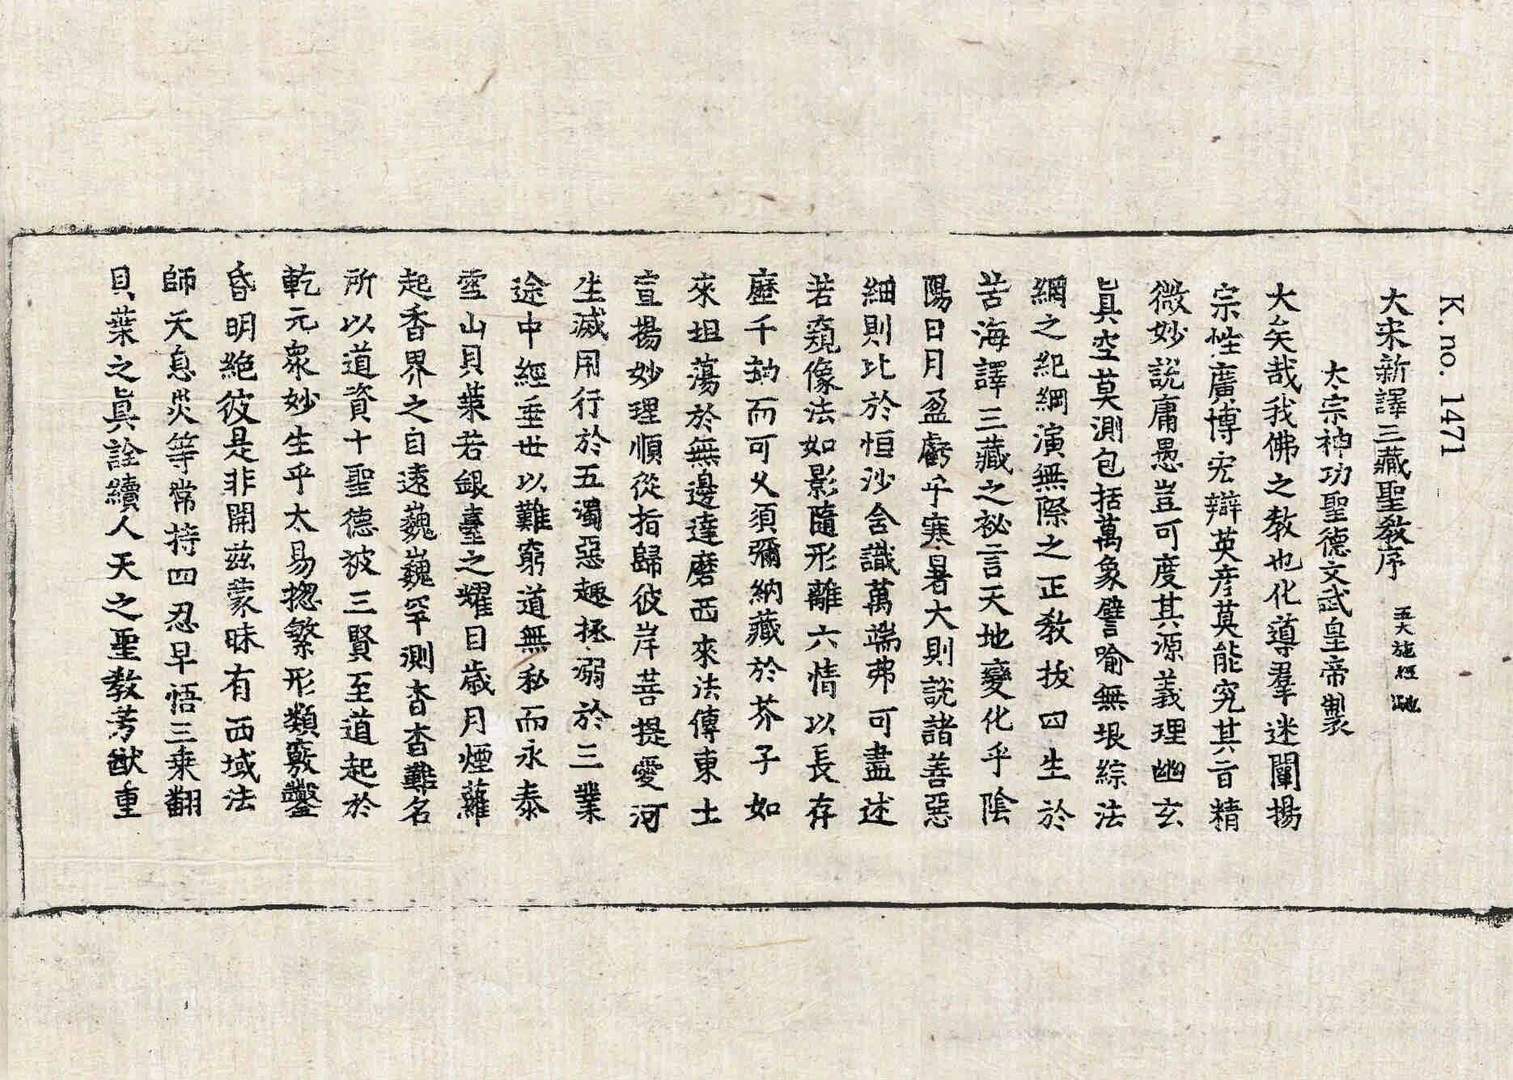 K. no. 1471
大宋新譯三藏聖敎序
太宗神功聖德文武皇帝製
大矣哉我佛之敎也化導羣迷闡揚
宗性廣博宏辯英彥莫能究其旨精
微妙說庸愚豈可度其源義理幽玄
眞空莫測包括萬象譬喻無垠綜法
網之紀綱演無際之正敎拔四生於
苦海譯三藏之祕言天地變化乎陰
陽日月盈虧乎寒暑大則說諸善惡
細則比於恒沙含識萬端弗可盡述
若窺像法如影隨形離六情以長存
歷千劫而可久須彌納藏於芥子如
來坦蕩於無邊達磨西來法傳東土
宣揚妙理順從指歸彼岸菩提愛河
生滅用行於五濁惡趣拯溺於三業
途中經垂世以難窮道無私而永泰
雪山貝葉若銀臺之耀目歲月煙蘿
起香界之自遠巍巍罕測杳杳難名
所以道資十聖德被三賢至道起於
乾元衆妙生乎太易揔繁形類竅鑿
昏明絶彼是非開茲蒙昧有西域法
師天息災等常持四忍早悟三乘翻
貝葉之眞詮續人天之聖敎芳猷重